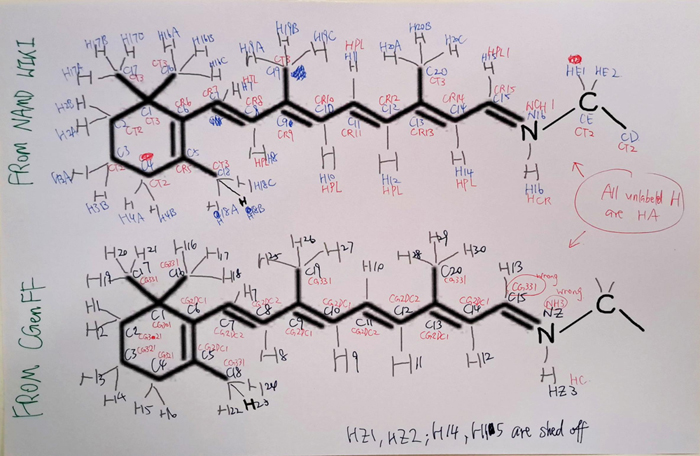 FROM NAMD WIKI
H17B H17C H16A H16B
H17A C17 CT3 C16 CT3 H16C
H19B
H19A CT3 H19C
C19
HPL
H11
H20B
H20A H20C
C20
CT3
HPL1
H15
HE1 HE2
H7 HPL
C1 CT3 C6 CR6 CR7 CR8 C9 CR9 CR10 CR11 CR12 C12 C13 CR13 CR14 C14 CR15 C15
NCH1
N16
CE
CT2
CD
CT2
C2 CT2
C3 CT2
C4 CT2
C5 CR5
CT3
C18
H3A
H3B
H4A H4B
H18A H18B H18C
H8
HPL
H10
HPL
H12
HPL
H14
HPL
H16
HCR
All unlabeled H
are HA
FROM CGenFF
H20 H21 H16 H17
H19 C17 CG331 C16 CG331 H18
H26
H25 H27
C19
CG331
H10
H29
H28 H30
C20
CG331
H13
CG331 wrong
C15
wrong
NH3
NZ
C
H1
H2
C1 CG301
C2 CG321
C3 CG321
C4 CG321
C5 CG2DC1
C6 CG2DC1
H7
C7 CG2DC2
C8 CG2DC2
C9 CG2DC1
C10 CG2DC1
C11 CG2DC2
C12 CG2DC2
C13 CG2DC1
C14 CG2DC1
CG331
C18
H3
H4
H5 H6
H22 H23 H24
H8
H9
H11
H12
H HC
HZ3
HZ1, HZ2; H14, H15 are shed off